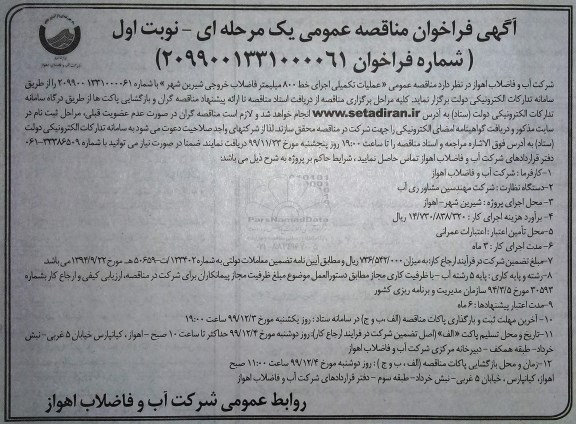 آگهی فراخوان مناقصه عمومی یک مرحله ای - نوبت اول
( شماره فراخوان ۲۰۹۹۰۰۱۳۳۱۰۰۰۰۶۱)
شرکت آب و فاضلاب اهواز در نظر دارد مناقصه عمومی «عملیات تکمیلی اجرای خط ۸۰۰ میلیمتر فاضلاب خروجی شیرین شهر » با شماره ۲۰۹۹۰۰۱۳۳۱۰۰۰۰۶۱ را از طریق
سامانه تدارکات الکترونیکی دولت برگزار نماید. کلیه مراحل برگزاری مناقصه از دریافت اسناد مناقصه تا ارائه پیشنهاد مناقصه گران و بازگشایی پاکت ها از طریق درگاه سامانه
تدارکات الکترونیکی دولت (ستاد) به آدرس www.setadiran.ir انجام خواهد شد و لازم است مناقصه گران در صورت عدم عضویت قبلی، مراحل ثبت نام در
سایت مذکور و دریافت گواهینامه امضای الکترونیکی را جهت شرکت در مناقصه محقق سازند. لذا از شرکتهای واجد صلاحیت دعوت می شود به سامانه تدارکات الکترونیکی دولت
(ستاد) به آدرس فوق الاشاره مراجعه و اسناد مناقصه را تا ساعت ۱۹:۰۰ روز پنجشنبه مورخ ۹۹/۱۱/۲۳ دریافت نمایند. ضمنا در صورت نیاز می توانید با شماره ۳۳۳۸۶۵۰۹-۰۶۱
دفتر قراردادهای شرکت آب و فاضلاب اهواز تماس حاصل نمایید ، شرایط حاکم بر پروژه به شرح ذیل می باشد:
۱-کارفرما : شرکت آب و فاضلاب اهواز
۲-دستگاه نظارت : شرکت مهندسین مشاور ری آب
۳- محل اجرای پروژه : شیرین شهر-اهواز
۴- برآورد هزینه اجرای کار : ۱۴/۷۳۰/۸۳۸/۳۲۰ ریال
۵-محل تأمین اعتبار : اعتبارات عمرانی
۶-مدت اجرای کار : ۳ ماه
۷-مبلغ تضمین شرکت در فرآیند ارجاع کار: به میزان ۷۳۶/۵۴۲/۰۰۰ ریال و مطابق آیین نامه تضمین معاملات دولتی به شماره ۱۲۳۴۰۲/ت-۵۰۶۵۹هـ مورخ ۱۳۹۴/۹/۲۲ می باشد.
۸-رشته و پایه کاری : پایه ۵ رشته آب -با ظرفیت کاری مجاز مطابق دستورالعمل موضوع مبلغ ظرفیت مجاز پیمانکاران برای شرکت در مناقصه، ارزیابی کیفی و ارجاع کار بشماره
۳۰۵۹۳ مورخ ۹۴/۳/۵ سازمان مدیریت و برنامه ریزی کشور
۹-مدت اعتبار پیشنهادها : ۶ ماه
۱۰- آخرین مهلت ثبت و بارگذاری پاکات مناقصه (الف ،ب و ج) در سامانه ستاد : روز یکشنبه مورخ ۹۹/۱۲/۳ ساعت ۱۹:۰۰
۱۱-تاریخ و محل تسلیم پاکت «الف» (اصل تضمین شرکت در فرایند ارجاع کار): روز دوشنبه مورخ ۹۹/۱۲/۴ حداکثر تا ساعت ۱۰ صبح -اهواز ، کیانپارس خیابان ۵ غربی-نبش
خرداد- طبقه همکف - دبیرخانه مرکزی شرکت آب و فاضلاب اهواز
۱۲-زمان و محل بازگشایی پاکات مناقصه (الف ، ب و ج ) : روز دوشنبه مورخ ۹۹/۱۲/۴ ساعت ۱۱:۰۰ صبح
اهواز، کیانپارس ، خیابان ۵ غربی-نبش خرداد- طبقه سوم - دفتر قراردادهای شرکت آب و فاضلاب اهواز
روابط عمومی شرکت آب و فاضلاب اهواز